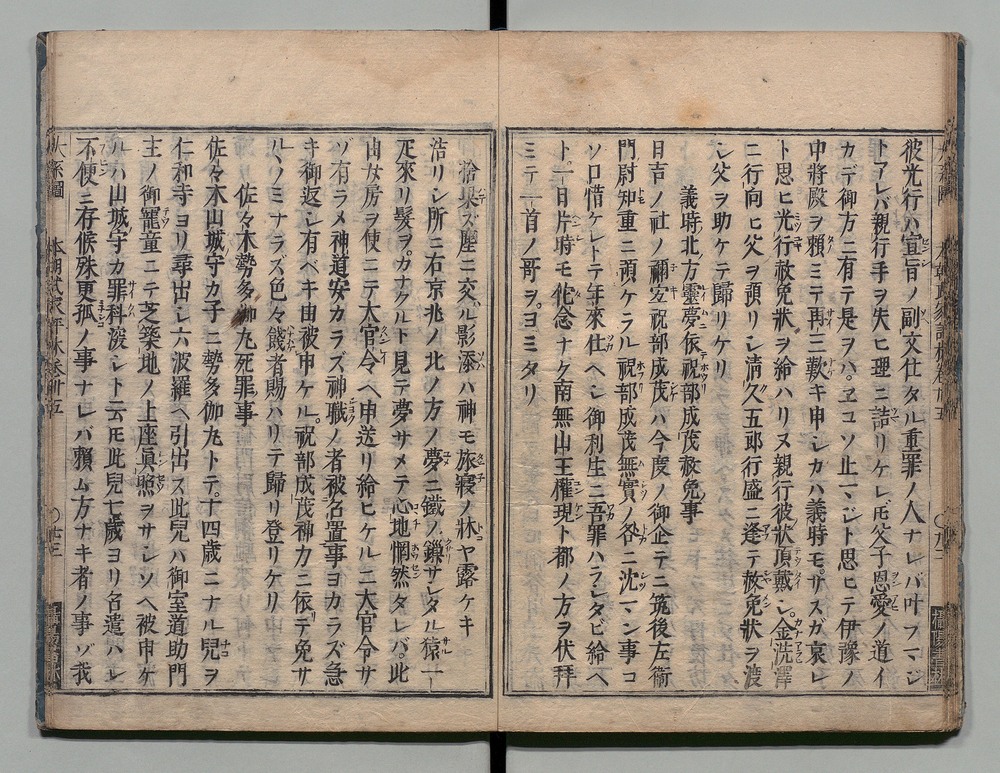 彼光行ハ宣旨ノ副文仕タル重罪ノ人ナレバ叶フマジ
トアレバ親行手ヲ失ヒ理ニ詰リケレ𪜈父子恩愛ノ道イ
カデ御方ニ有テ是ヲハ。ヱコソ止ニマジト思ヒテ伊豫ノ
中將殿ヲ頼ミテ再三歎キ申シカハ義時モ。サスガ哀レ
ト思ヒ光行赦免狀ヲ給ハリヌ親行彼狀頂戴シ。金洗澤
ニ行向ヒ父ヲ預リシ清久五郎行盛ニ逢テ赦免狀ヲ渡
シ父ヲ助ケテ歸リケリ
義時北ノ方靈夢依祝部成茂赦免事
日吉ノ社ノ禰宜祝部成茂ハ今度ノ御企テニ筑後左衞
門尉知重ニ預ケラル祝部成茂無實ノ咎ニ沈マン事コ
ソ口惜ケレトテ年來仕ヘシ御利生ニ吾罪ハラシタビ給ヘ
ト。一日片時モ他念ナク南無山王權現ト都ノ方ヲ伏拜
ミテ一首ノ哥ヲ。ヨミタリ
捨果ズ塵ニ交ル影添ハ神モ旅寢ノ牀ヤ露ケキ
浩リシ所ニ右京兆ノ北ノ方ノ夢ニ鐵ノ鏁サシタル猿一
疋來リ髪ヲ。カナクルト見テ夢サメテ心地惘然タレバ。此
由女房ヲ使ニテ大官令ヘ申送リ給ヒケルニ大官令サ
ゾ有ラメ神道安カラズ神職ノ者被召置事ヨカラズ急
キ御返シ有ベキ由被申ケル。祝部成茂神力ニ依テ免サ
ルヽノミナラズ色々餞者賜ハリテ歸リ登リケリ
佐々木勢多御丸死罪事
佐々木山城守カ子ニ勢多伽丸トテ。十四歳ニナル兒ヲ
仁和寺ヨリ尋出シ六波羅ヘ引出ス此兒ハ御室道助門
主ノ御寵童ニテ芝築地ノ上座眞照ヲサシソヘ被申ケ
ルハ山城守カ罪科深シト云𪜈此兒七歳ヨリ召遣ハレ
不便ニ存候殊更孤ノ事ナレバ頼ム方ナキ者ノ事ゾ我